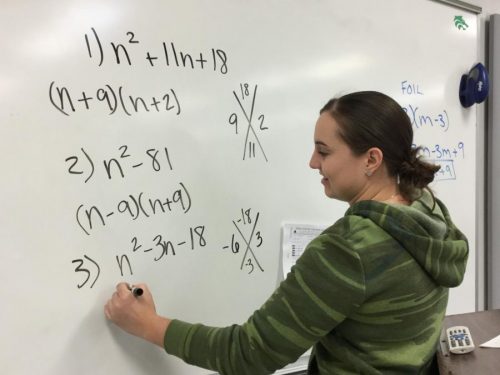 1) n² + 11n + 18
(n+9)(n+2)
18
9 2
11
2) n² - 81
(n-9)(n+9)
3) n² - 3n - 18
-18
-6 3
-3
FOIL
)(m-3)
-3m+9
+9